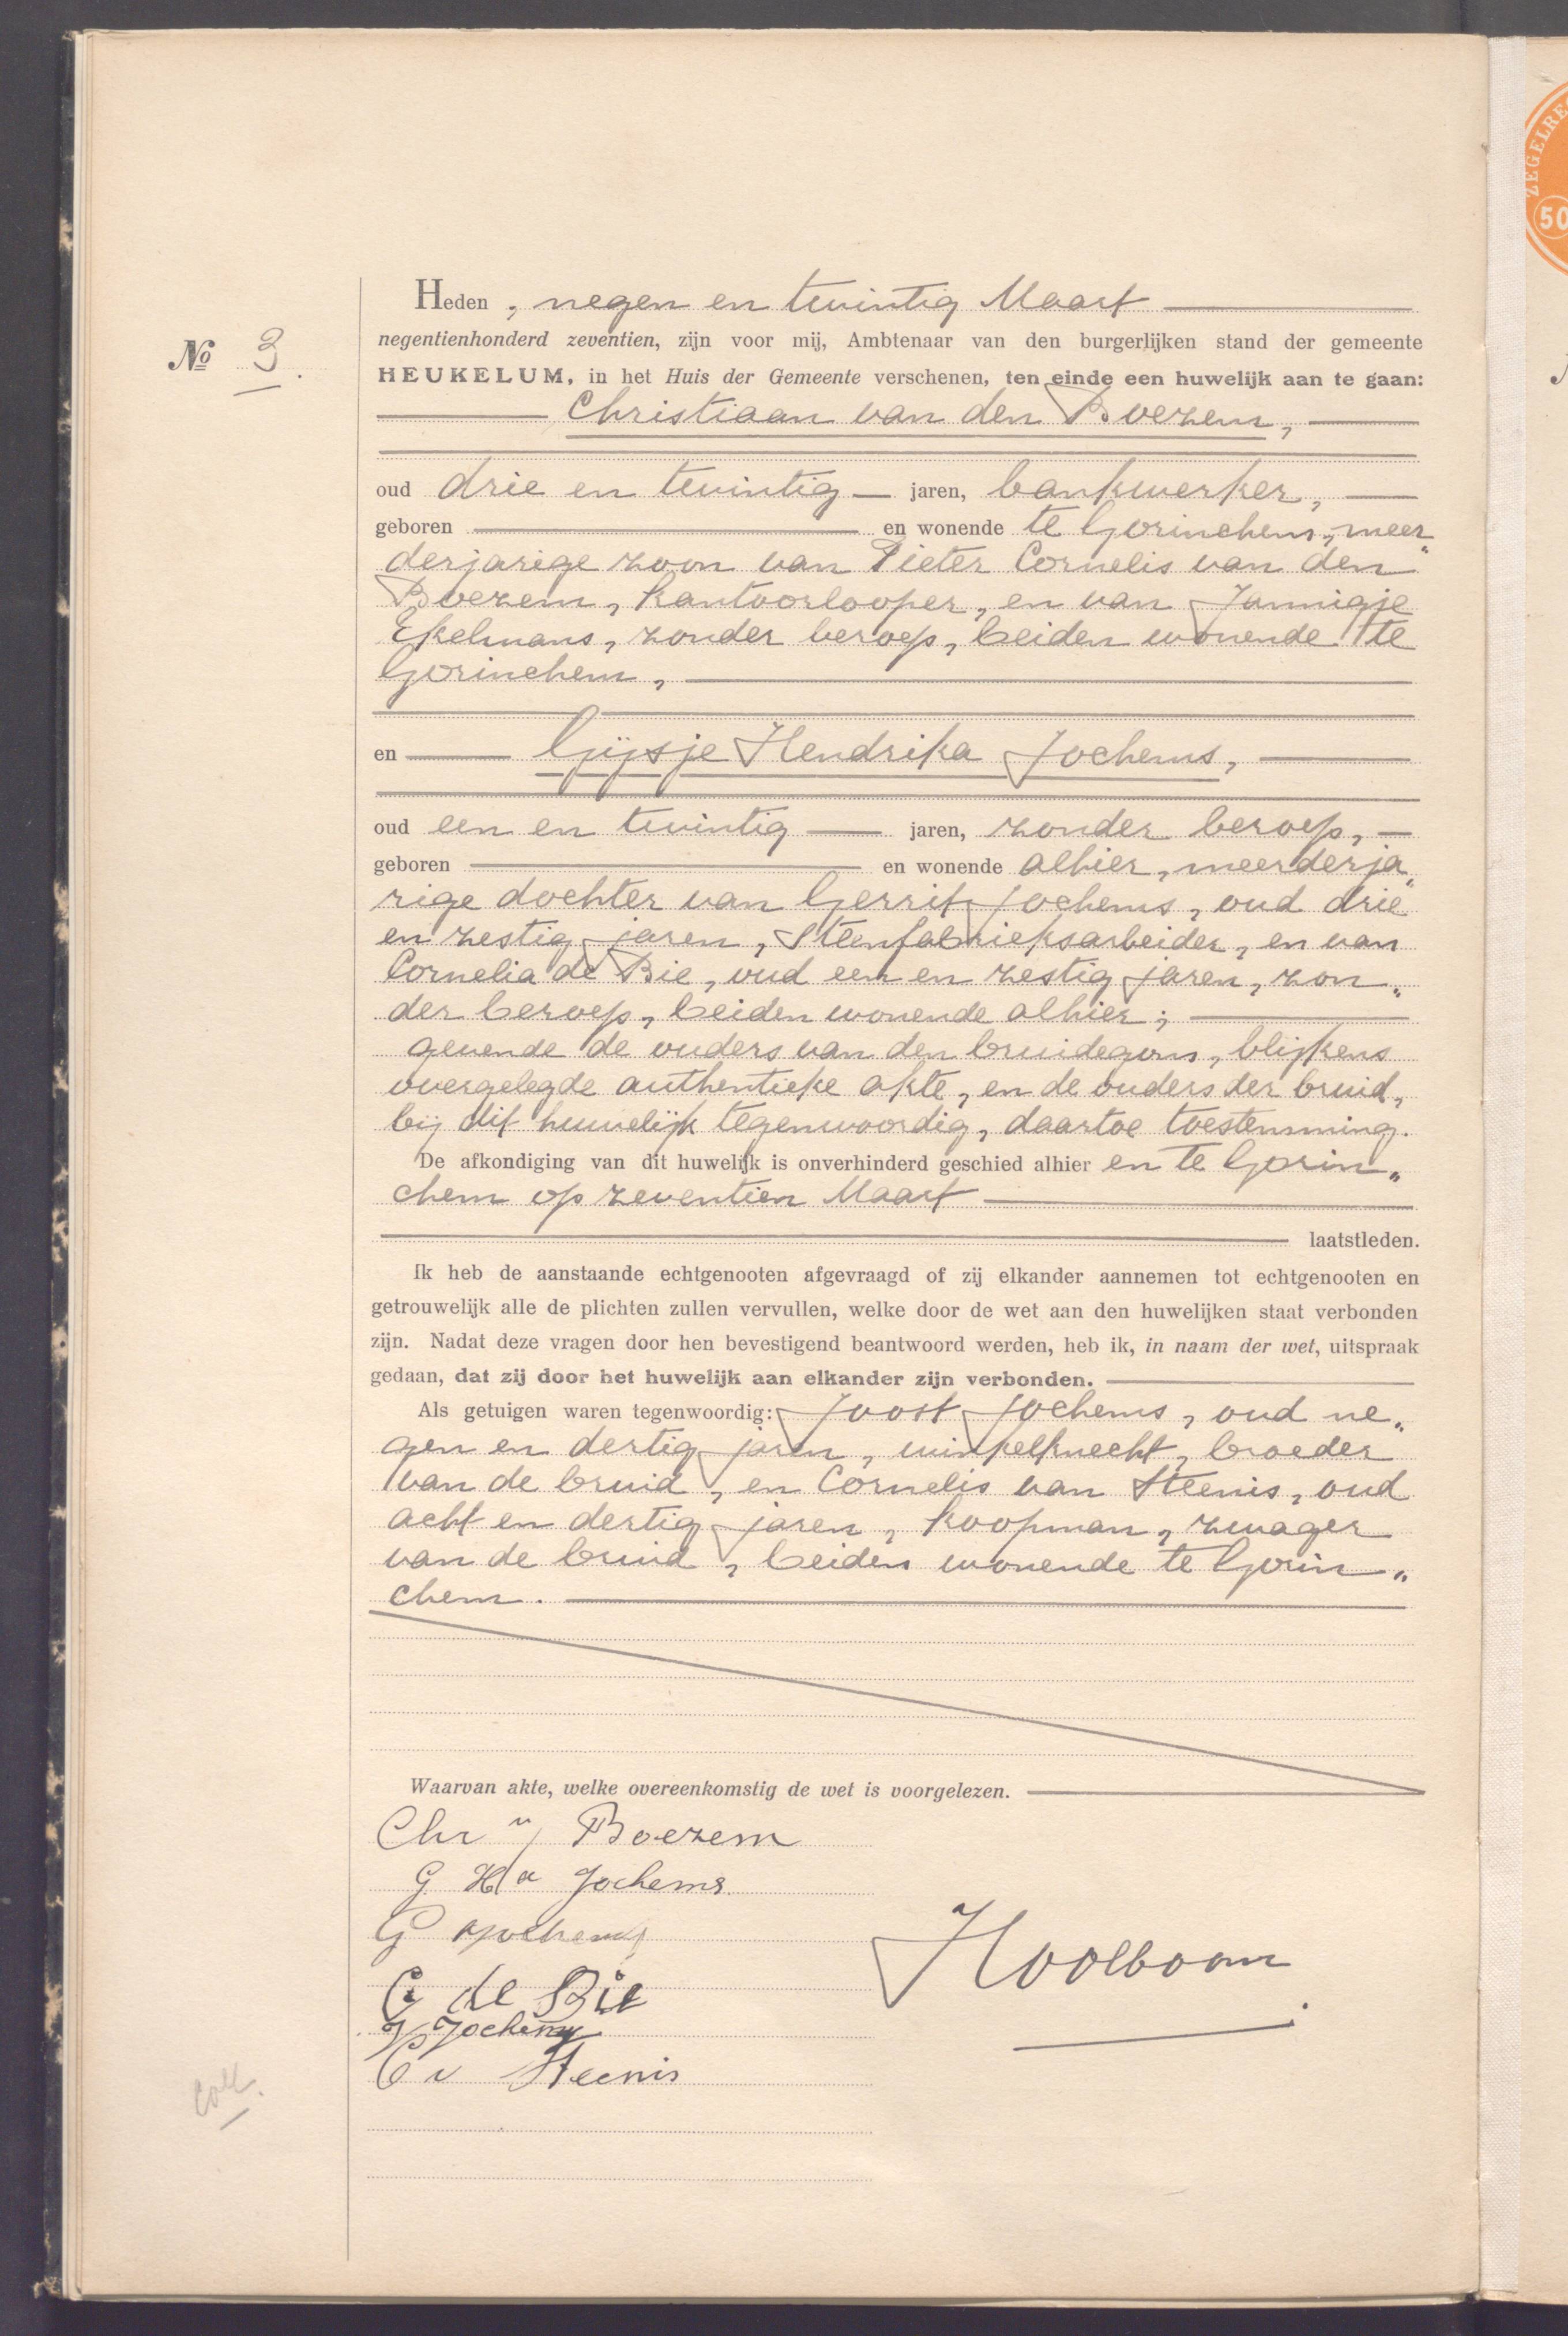 Heden, negen en twintig Maart
No 3.
negentienhonderd zeventien, zijn voor mij, Ambtenaar van den burgerlijken stand der gemeente
HEUKELUM, in het Huis der Gemeente verschenen, ten einde een huwelijk aan te gaan:
Christiaan van den Boezem,
oud drie en twintig jaren, bankwerker,
geboren en wonende te Gorinchem, meer„
derjarige zoon van Pieter Cornelis van den
Boezem, kantoorlooper, en van Jannigje
Ekelmans, zonder beroep, beiden wonende te
Gorinchem,
en Gijsje Hendrika Jochems,
oud een en twintig jaren, zonder beroep,
geboren en wonende alhier, meerderja„
rige dochter van Gerrit Jochems, oud drie
en zestig jaren, Steenfabrieksarbeider, en van
Cornelia de Bie, oud een en zestig jaren, zon„
der beroep, beiden wonende alhier;
gevende de ouders van den bruidegom, blijkens
overgelegde authentieke akte, en de ouders der bruid,
bij dit huwelijk tegenwoordig, daartoe toestemming.
De afkondiging van dit huwelijk is onverhinderd geschied alhier en te Gorin„
chem op zeventien Maart
laatstleden.
Ik heb de aanstaande echtgenooten afgevraagd of zij elkander aannemen tot echtgenooten en
getrouwelijk alle de plichten zullen vervullen, welke door de wet aan den huwelijken staat verbonden
zijn. Nadat deze vragen door hen bevestigend beantwoord werden, heb ik, in naam der wet, uitspraak
gedaan, dat zij door het huwelijk aan elkander zijn verbonden.
Als getuigen waren tegenwoordig: Joost Jochems, oud ne„
gen en dertig jaren, winkelknecht, broeder
van de bruid, en Cornelis van Steenis, oud
acht en dertig jaren, koopman, zwager
van de bruid, beiden wonende te Gorin„
chem.
Waarvan akte, welke overeenkomstig de wet is voorgelezen.
Chr Boezem
G Ha Jochems
G Jochems
C de Bie
J Jochems
C v Steenis
Hoolboom
Coll.
ZEGELRE
50